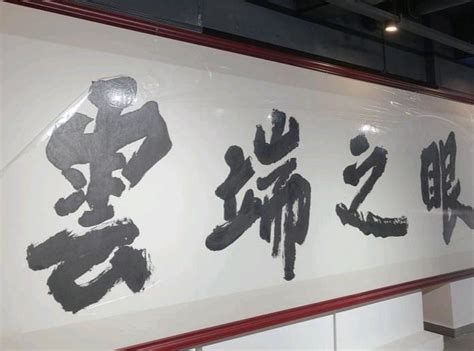 雲端之眼